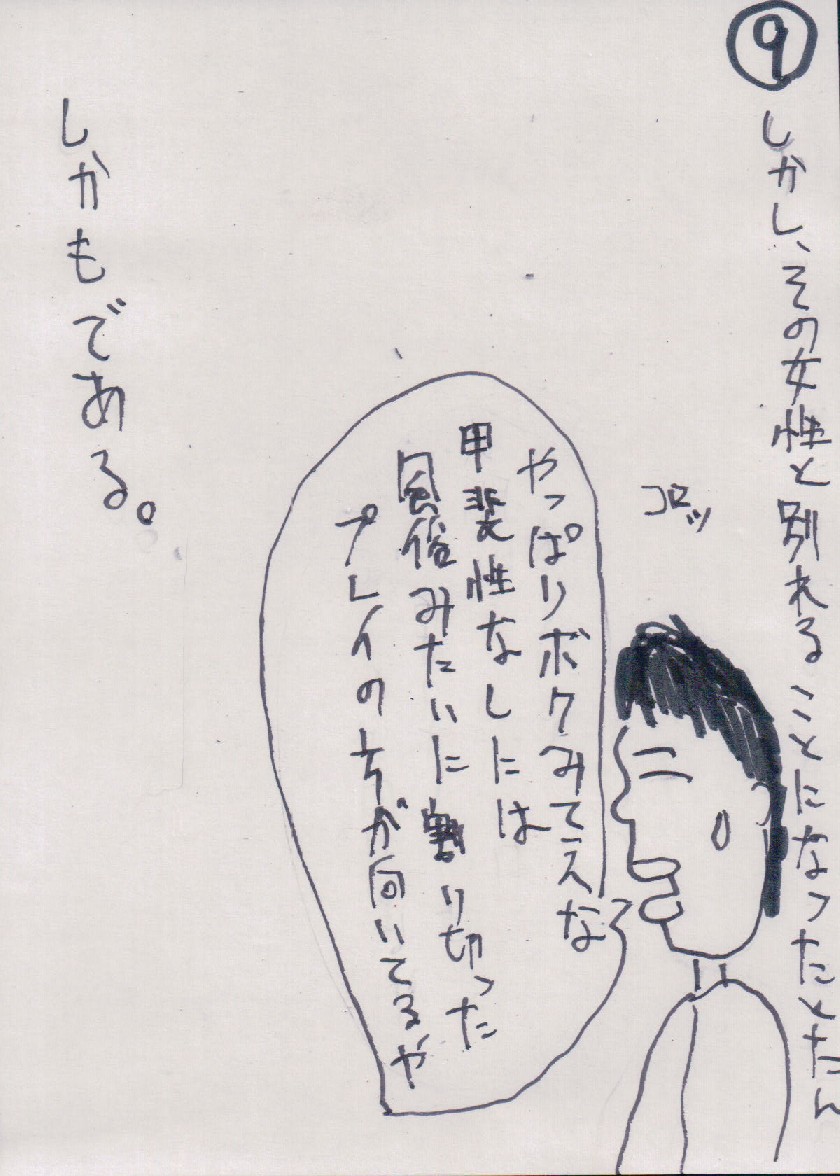 ⑨
しかし、その女性と別れることになったとたん
コロッ
やっぱりボクみてえな
甲斐性なしには
風俗みたいに割り切った
プレイの方が向いてるや
しかもである。